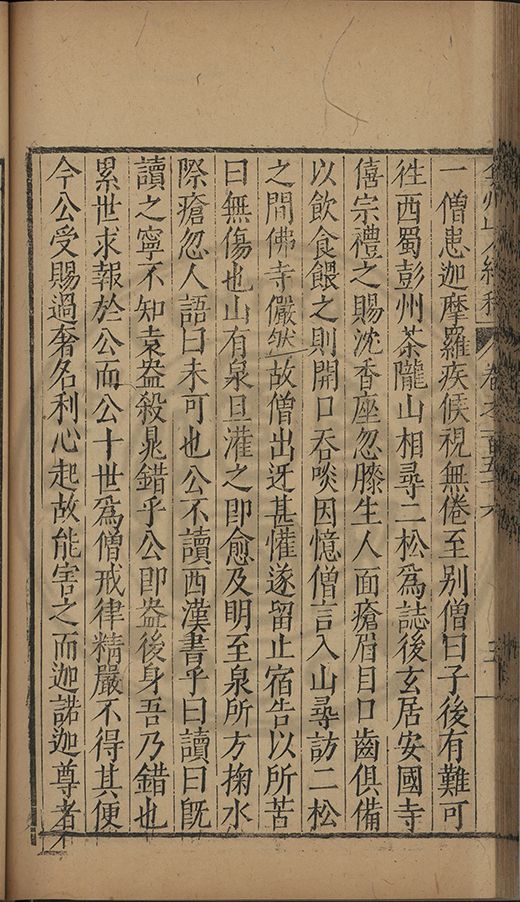 一僧患迦摩羅疾候視無倦至别僧曰子後有難可
徃西蜀彭州茶隴山相尋二松爲誌後玄居安國寺
僖宗禮之賜沈香座忽膝生人面瘡眉目口齒俱備
以飲食餧之則開口吞啖因憶僧言入山尋訪二松
之間佛寺儼然故僧出迓甚懽遂留止宿告以所苦
曰無傷也山有泉旦灌之即愈及明至泉所方掬水
際瘡忽人語曰未可也公不讀西漢書乎曰讀曰旣
讀之寧不知袁盎殺晁錯乎公即盎後身吾乃錯也
累世求報於公而公十世爲僧戒律精嚴不得其便
今公受賜過奢名利心起故能害之而迦諾迦尊者